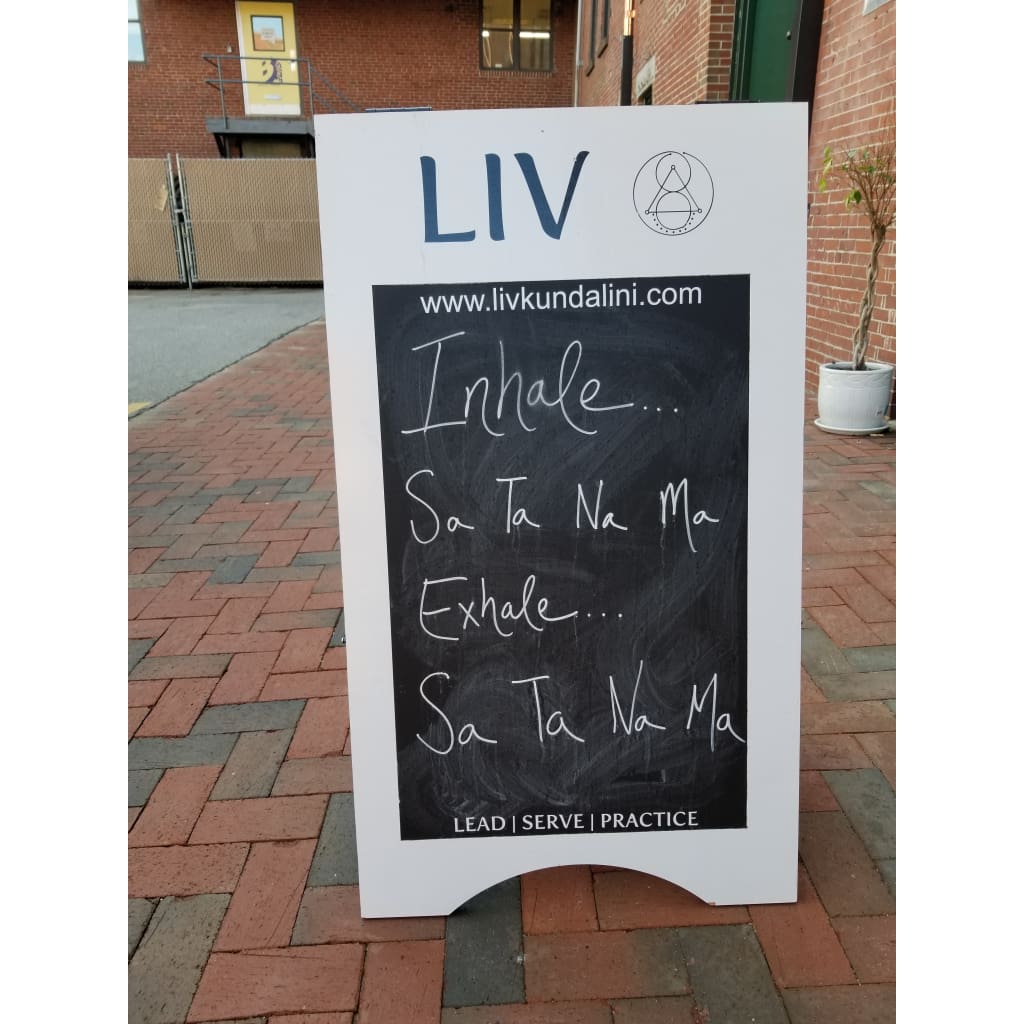 LIV
www.livkundalini.com
Inhale...
Sa Ta Na Ma
Exhale....
Sa Ta Na Ma
LEAD | SERVE | PRACTICE